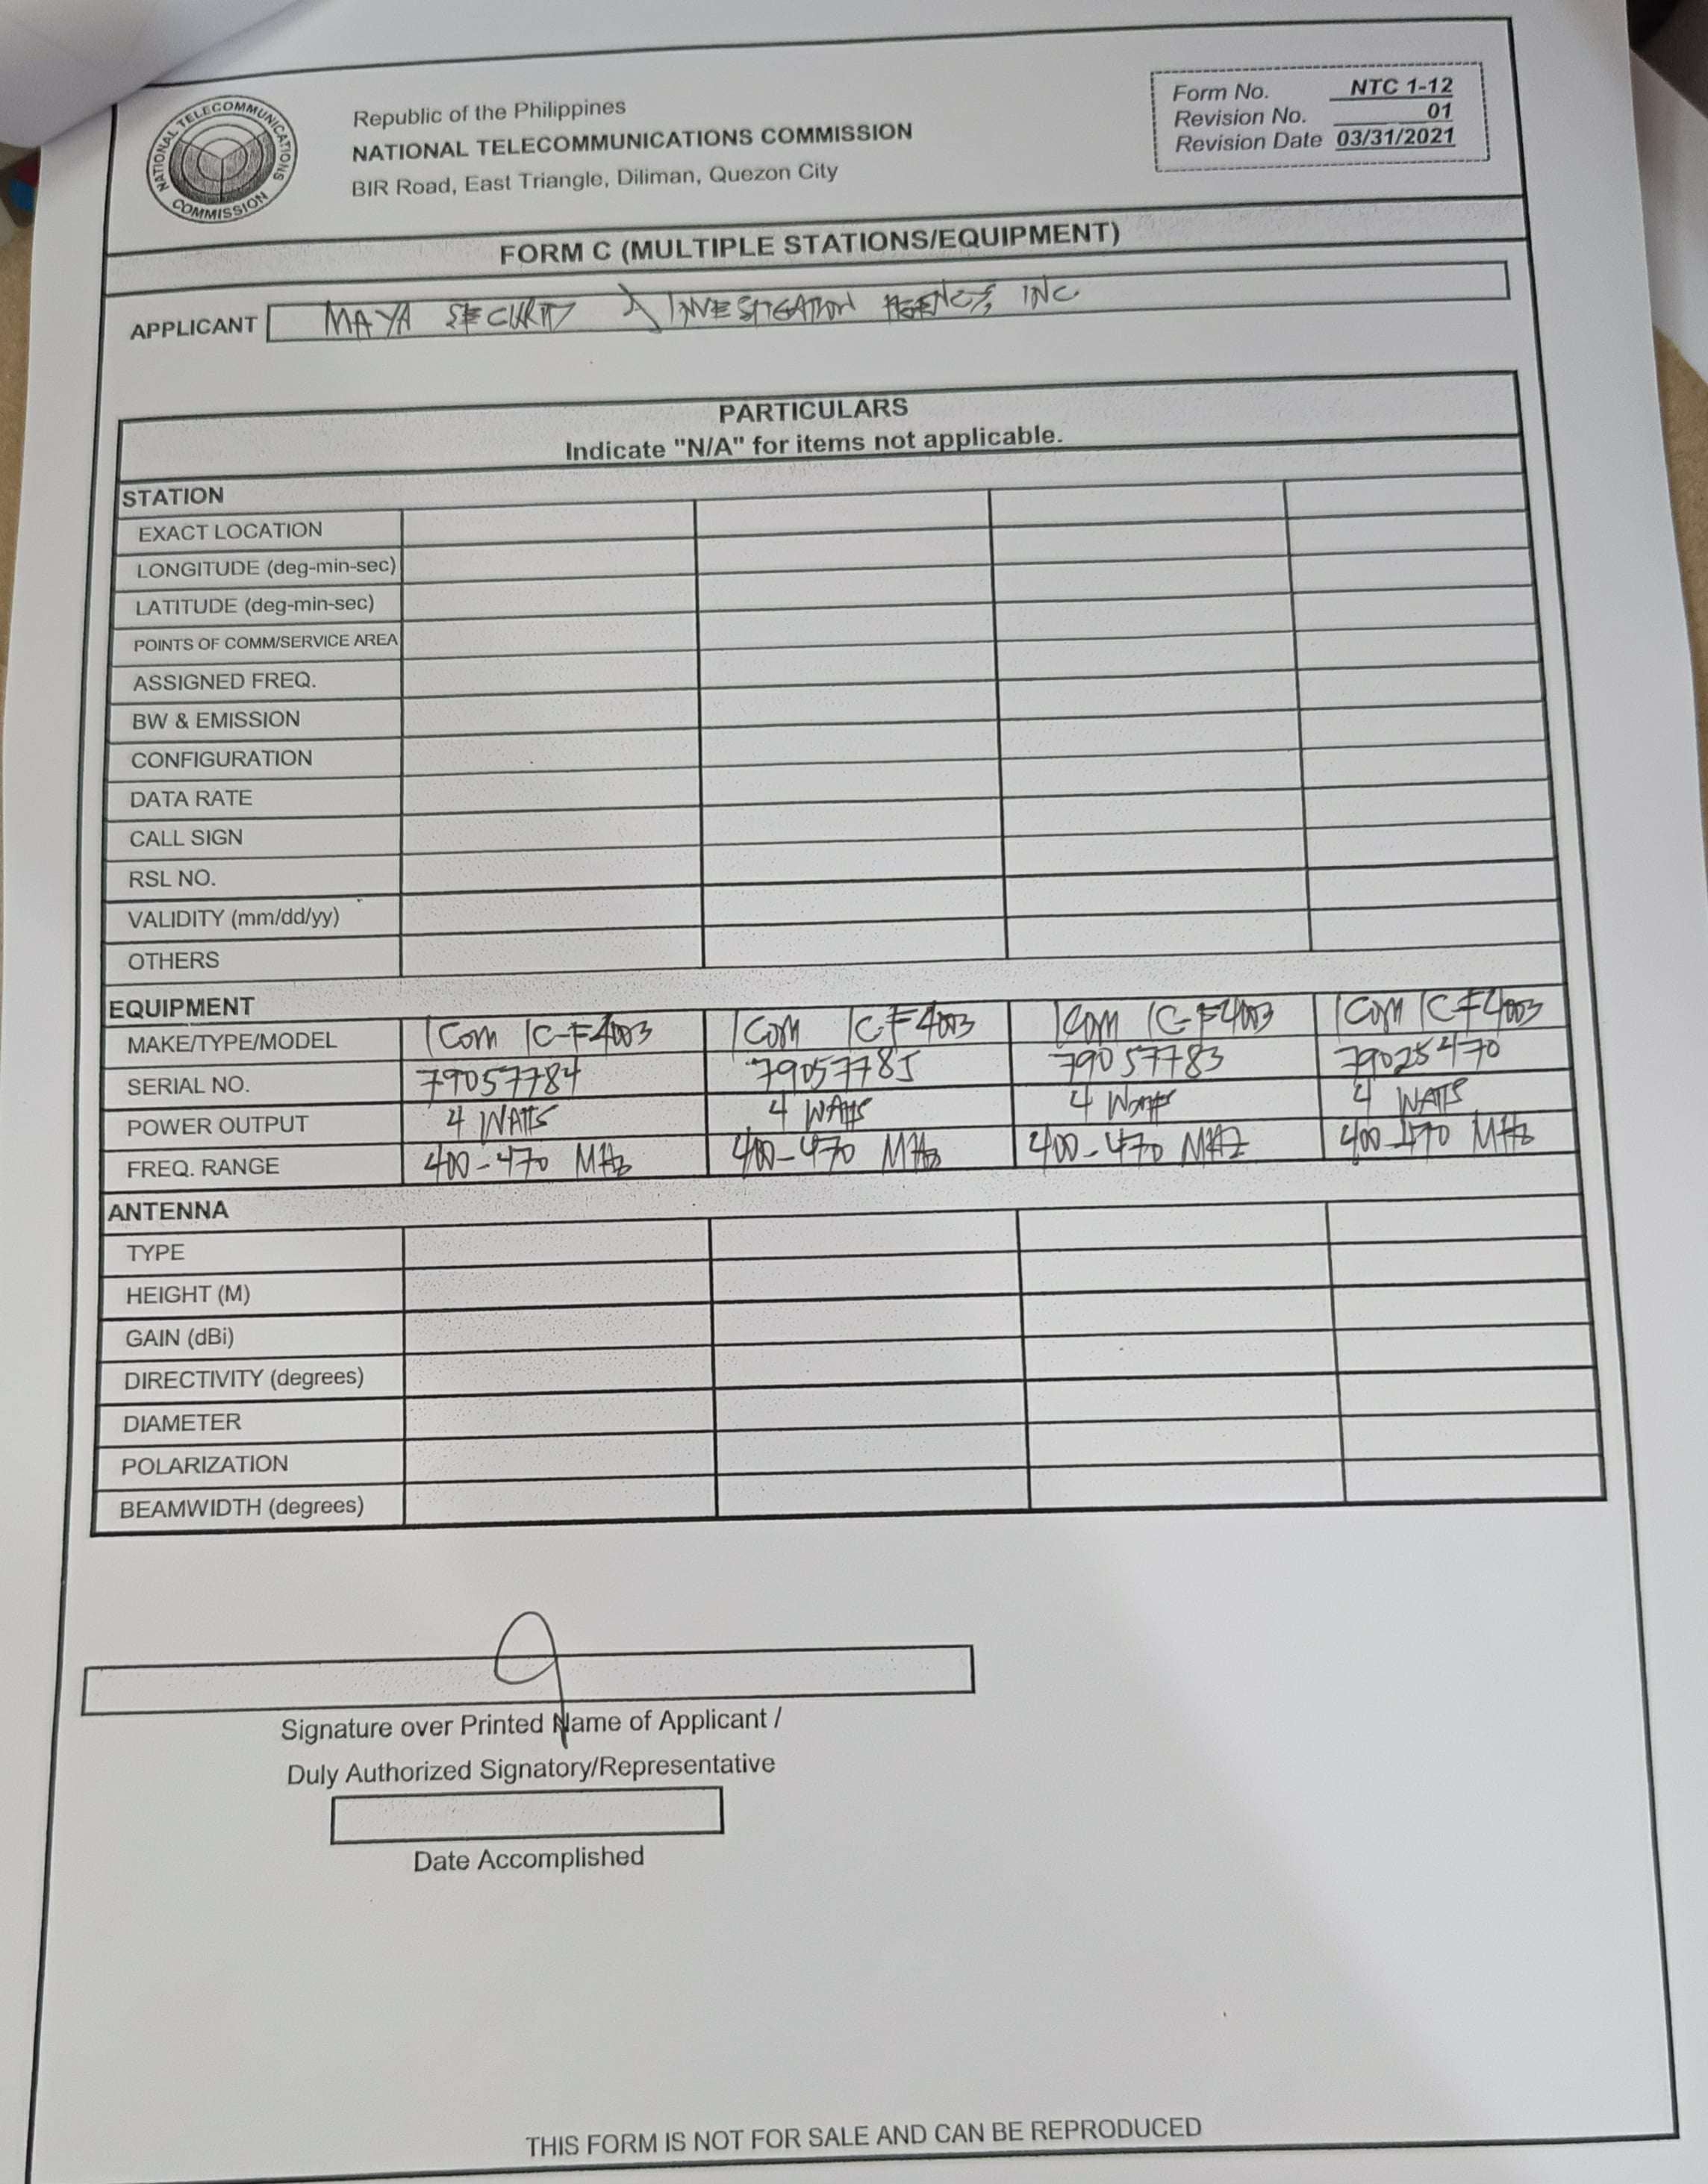 NATIONAL TELECOMMUNICATIONS COMMISSION
Republic of the Philippines
NATIONAL TELECOMMUNICATIONS COMMISSION
BIR Road, East Triangle, Diliman, Quezon City
Form No. NTC 1-12
Revision No. 01
Revision Date 03/31/2021
FORM C (MULTIPLE STATIONS/EQUIPMENT)
APPLICANT MAYA SECURITY & INVESTIGATION AGENCY, INC
PARTICULARS
Indicate "N/A" for items not applicable.
STATION
EXACT LOCATION
LONGITUDE (deg-min-sec)
LATITUDE (deg-min-sec)
POINTS OF COMM/SERVICE AREA
ASSIGNED FREQ.
BW & EMISSION
CONFIGURATION
DATA RATE
CALL SIGN
RSL NO.
VALIDITY (mm/dd/yy)
OTHERS
EQUIPMENT
MAKE/TYPE/MODEL ICOM IC-F4003 ICOM IC-F4003 ICOM IC-F4003 ICOM IC-F4003
SERIAL NO. 79057784 79057785 79057783 79025470
POWER OUTPUT 4 WATTS 4 WATTS 4 WATTS 4 WATTS
FREQ. RANGE 400-470 MHz 400-470 MHz 400-470 MHZ 400-470 MHz
ANTENNA
TYPE
HEIGHT (M)
GAIN (dBi)
DIRECTIVITY (degrees)
DIAMETER
POLARIZATION
BEAMWIDTH (degrees)
Signature over Printed Name of Applicant /
Duly Authorized Signatory/Representative
Date Accomplished
THIS FORM IS NOT FOR SALE AND CAN BE REPRODUCED